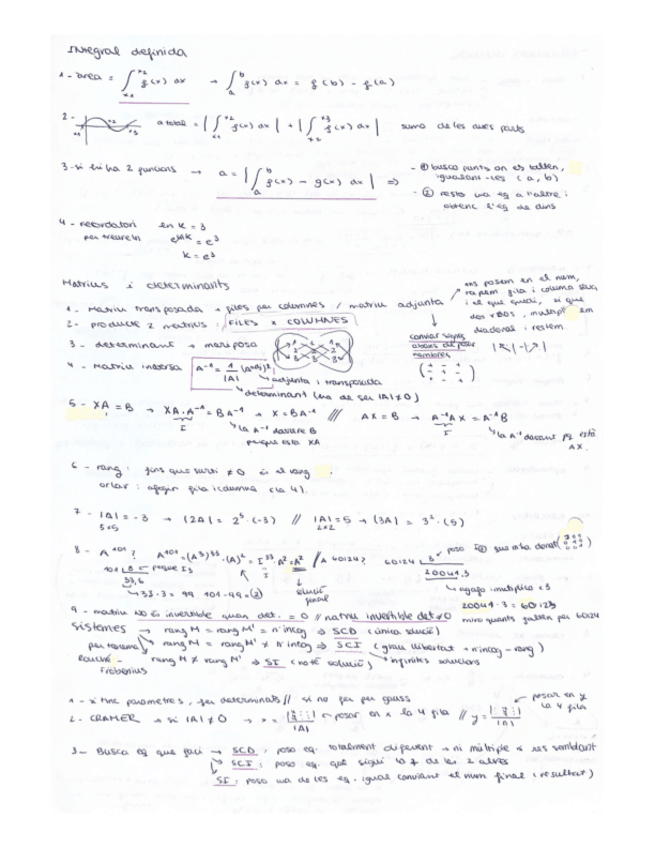 Integral definida
1 - area = ∫x1 x2 f(x) dx → ∫a b f(x) dx = f(b) - f(a)
2 - x1 x2 x3 a total = | ∫x1 x2 f(x) dx | + | ∫x2 x3 f(x) dx | suma de les dues parts
3 - si hi ha 2 funcions → a = | ∫a b f(x) - g(x) dx | ⇒
- ① busco punts on es tallen,
igualant-les (a, b)
- ② resto una eq a l'altre i
obtenc l'eq de dins
4 - recordatori ln k = 3
per treure ln e^lnk = e³
k = e³
Matrius i determinants
1 - Matriu transposada → files per columnes / matriu adjunta
ens posem en el num,
tapem fila i columna seva,
i el que queda, si que
dos x dos, multipl em
diagonal i restem
2 - producte 2 matrius : FILES x COLUMNES
canviar signes
abans de posar
nombres
3 - determinant → mariposa
4 - Matriu inversa A⁻¹ = 1/|A| (A^adj)^t
adjunta i transposada
determinant (ha de ser |A| ≠ 0)
5 - XA = B → XA·A⁻¹ = BA⁻¹ → X = BA⁻¹ /// AX = B → A⁻¹AX = A⁻¹B
I I
la A⁻¹ darrere B
perque esta XA
la A⁻¹ davant pq està
AX.
6 - rang : fins que surti ≠ 0 és el rang
orlar : afegir fila i columna (la 4).
7 - |A| = -3 → |2A| = 2⁵·(-3) // |A| = 5 → |3A| = 3²·(5)
5x5 2x2
8 - A¹⁰¹ ? A¹⁰¹ = (A³)³³·(A)² = I³³·A² = A² // A 60124 ? 60124 |3
101 |3 → perque I3
33,6
20041,3
solució
final
33·3 = 99 101-99 = 2
agafo i multiplico x3
20041·3 = 60123
miro quants falten per 60124
9 - matriu NO és invertible quan det. = 0 // matriu invertible det ≠ 0
Sistemes → rang M = rang M' = nº incog ⇒ SCD (única solució)
per teorema rang M = rang M' ≠ nº incog ⇒ SCI (grau llibertat → nº incog - rang)
infinites solucions
Rouché - Frobenius
rang M ≠ rang M' ⇒ SI (no té solució)
1 - si tinc parametres, fer determinants // si no fer per gauss
2 - CRAMER → si |A| ≠ 0 → x = |A| → posar en x la 4 fila // y = |A|
posar en y
la 4 fila
3 - Busca eq que faci → SCD : poso eq. totalment diferent → ni múltiple i res semblant
SCI : poso eq. que sigui de les 2 altres
SI : poso una de les eq. igual canviant el num final (resultat)